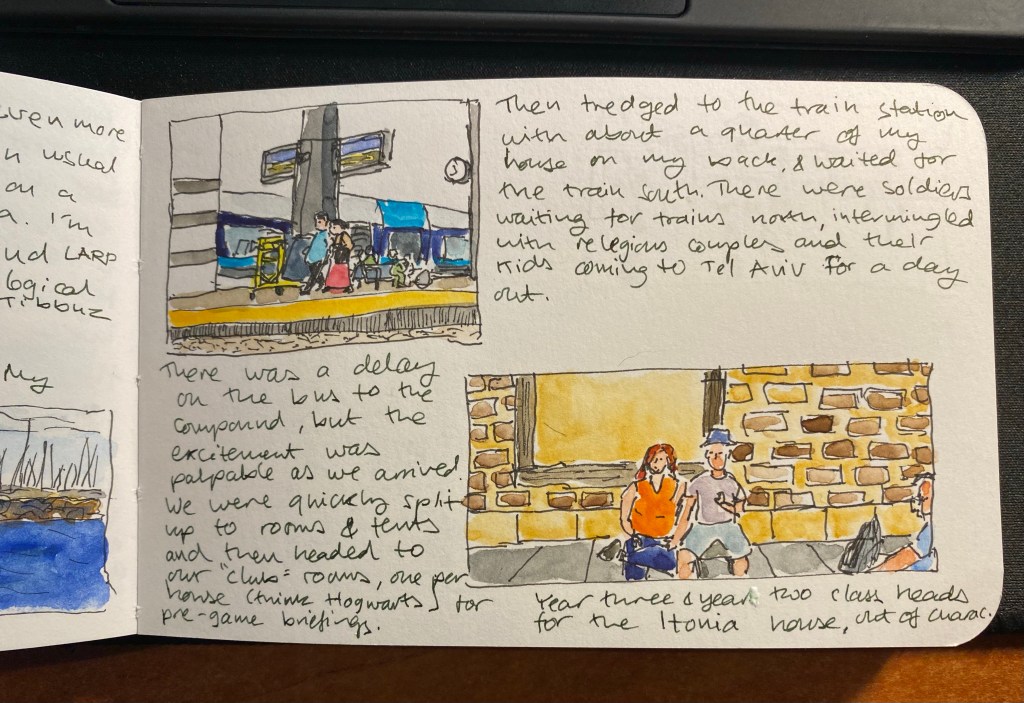 even more
n usual
on a
a. I'm
ud LARP
logical
Tibbuz
My
Then tredged to the train station
with about a quarter of my
house on my back, & waited for
the train south. There were soldiers
waiting for trains north, intermingled
with relegious couples and their
kids coming to Tel Aviv for a day
out.
There was a delay
on the bus to the
compound, but the
excitement was
palpable as we arrived.
We were quickly split
up to rooms & tents
and then headed to
our "club" rooms, one per
house (think Hogwarts) for
pre-game briefings.
Year three & year two class heads
for the Itonia house, out of charac.